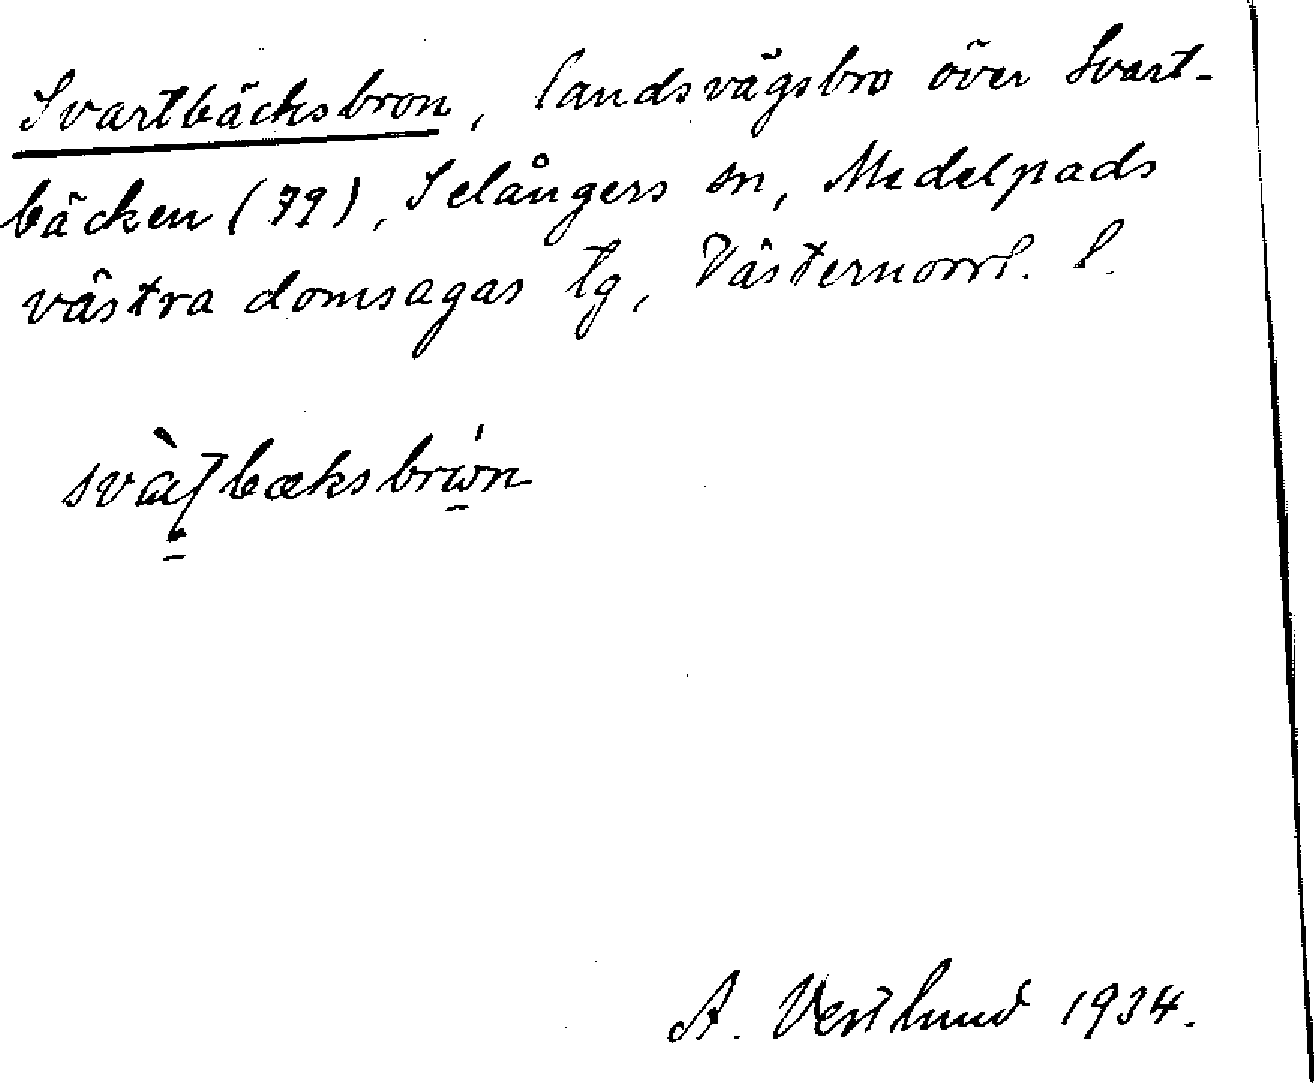 Svartbäcksbron, landsvägsbro över Svart-
bäcken (79), Selångers sn, Medelpads
västra domsagas tg, Västernorrl. l.
A. Vestlund 1934.